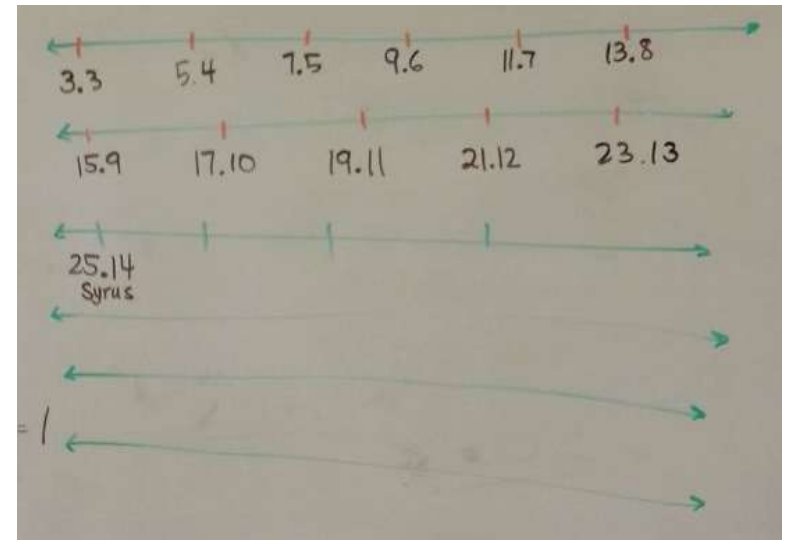 3.3 5.4 7.5 9.6 11.7 13.8
15.9 17.10 19.11 21.12 23.13
25.14
Syrus
= 1